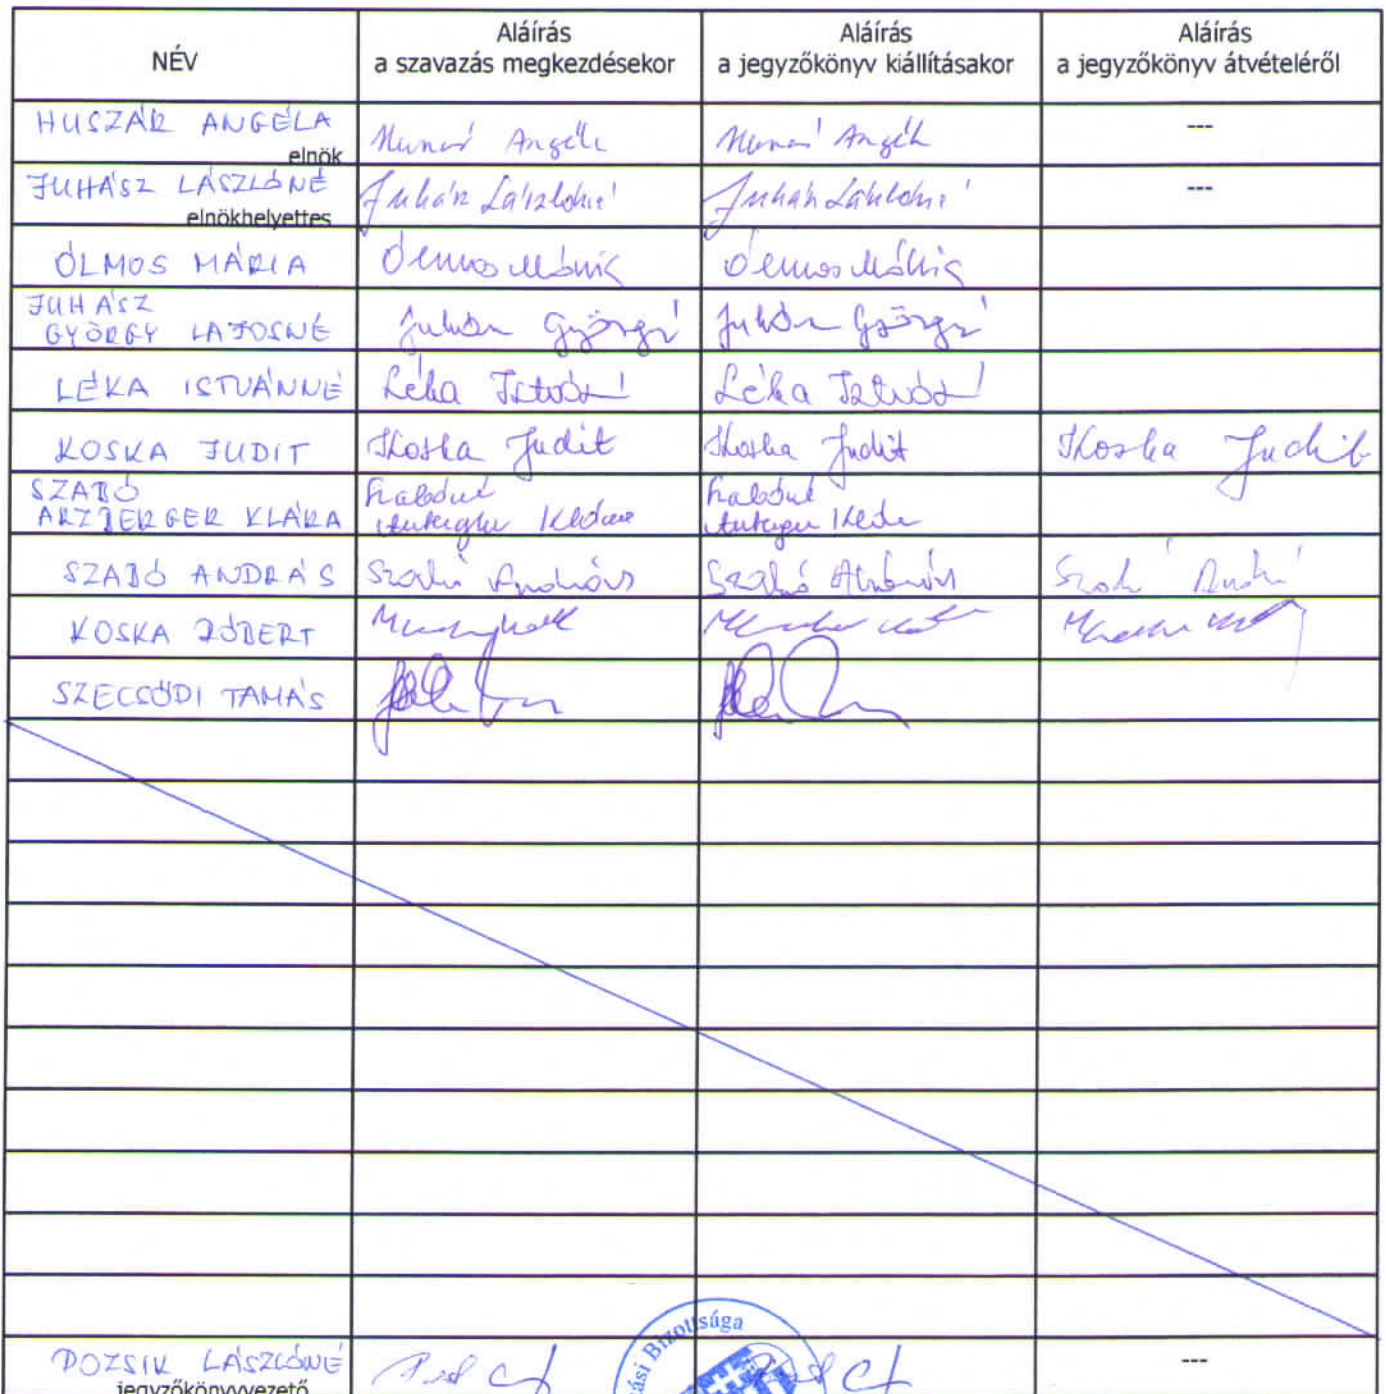 NÉV
Aláírás
a szavazás megkezdésekor
Aláírás
a jegyzőkönyv kiállításakor
Aláírás
a jegyzőkönyv átvételéről
HUSZÁR ANGÉLA
elnök
Angéla
Angéla
---
JUHÁSZ LÁSZLÓNÉ
elnökhelyettes
Juhász Lászlóné
Juhász Lászlóné
---
ÓLMOS MÁRIA
Ólmos Mária
Ólmos Mária
JUHÁSZ
GYÖRGY LAJOSNÉ
Juhász György
Juhász György
LÉKA ISTVÁNNÉ
Léka Istvánné
Léka Istvánné
KOSKA JUDIT
Koska Judit
Koska Judit
Koska Judit
SZABÓ
ARZBERGER KLÁRA
Szabóné
Klára
Szabóné
Klára
SZABÓ ANDRÁS
Szabó András
Szabó András
Szabó András
KOSKA RÓBERT
SZECSŐDI TAMÁS
ási Bizottsága
POZSIK LÁSZLÓNÉ
jegyzőkönyvvezető
---